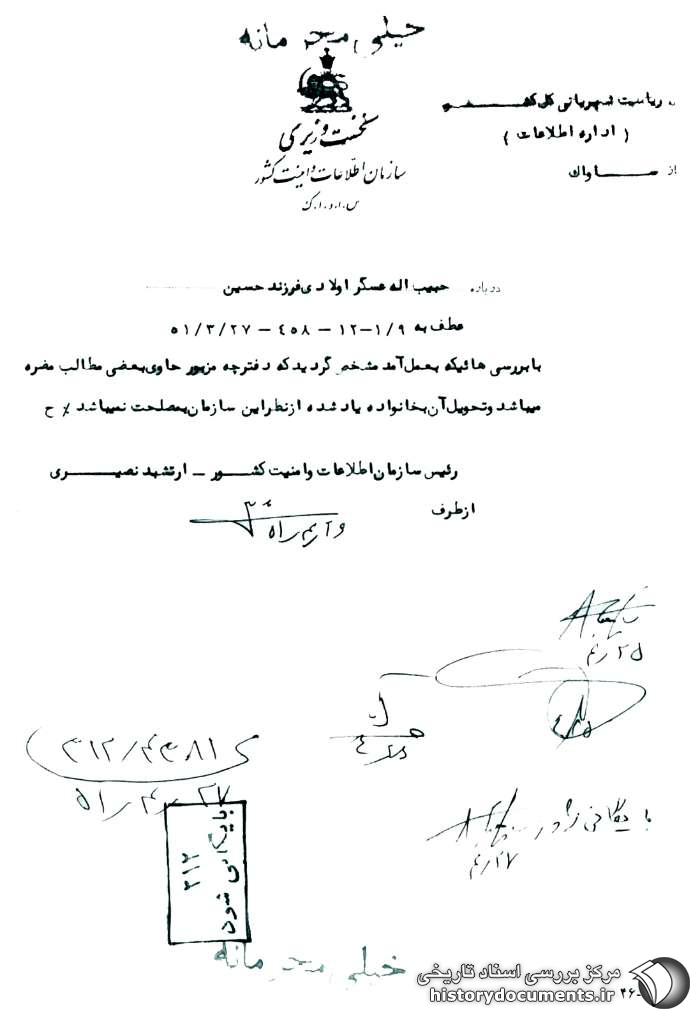 خیلی محرمانه
نخست وزیری
سازمان اطلاعات و امنیت کشور
س.ا.و.ا.ک
ریاست شهربانی کل کشور
(اداره اطلاعات)
از ساواک
درباره حبیب اله عسگراولادی فرزند حسین
عطف به ۱/۹-۱۲ - ۴۵۸ - ۵۱/۳/۲۷
با بررسی هائیکه بعمل آمد مشخص گردید که دفترچه مزبور حاوی بعضی مطالب مضره
میباشد و تحویل آن بخانواده یاد شده از نظر این سازمان بمصلحت نمیباشد ٪ ح
رئیس سازمان اطلاعات و امنیت کشور - ارتشبد نصیری
از طرف
۲۵/۴
۳۱۲/۴۳۸۱
۲۷/۴/۵۱
بایگانی شود
۳۱۲
۲۷/۴
خیلی محرمانه
مرکز بررسی اسناد تاریخی
historydocuments.ir